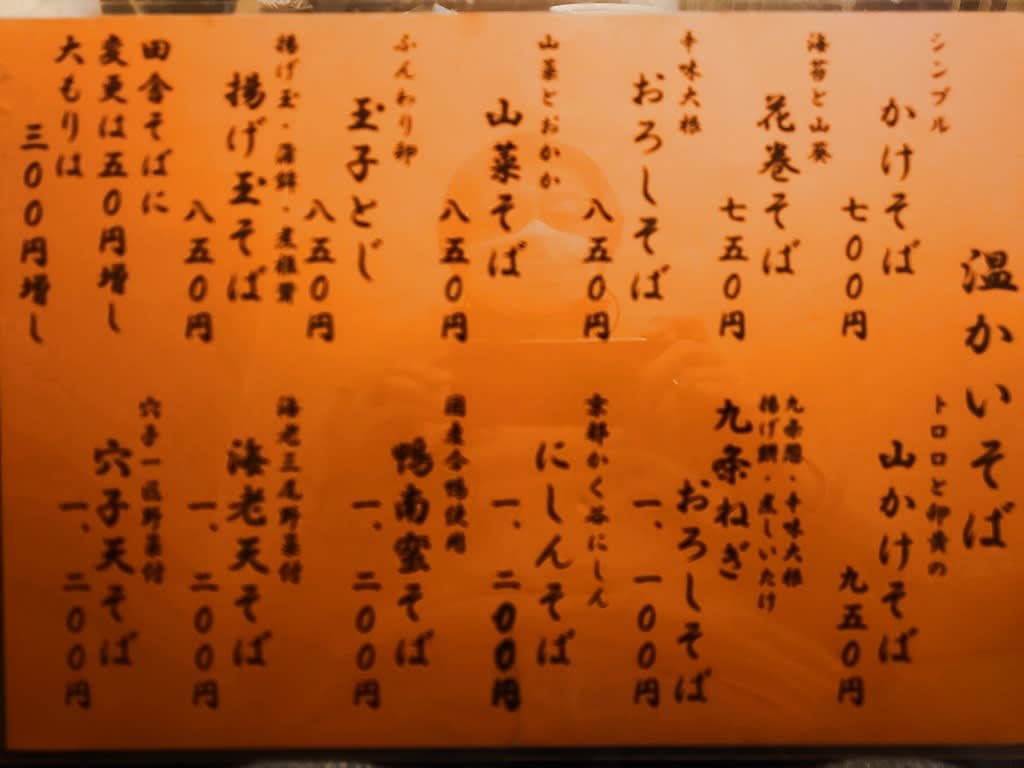 温かいそば
シンプル
かけそば
七〇〇円
海苔と山葵
花巻そば
七五〇円
辛味大根
おろしそば
八五〇円
山菜とおかか
山菜そば
八五〇円
ふんわり卵
玉子とじ
八五〇円
揚げ玉・蒲鉾・煮椎茸
揚げ玉そば
八五〇円
田舎そばに
変更は五〇円増し
大もりは
三〇〇円増し
トロロと卵黄の
山かけそば
九五〇円
九条葱・辛味大根
揚げ餅・煮しいたけ
九条ねぎ
おろしそば
一、一〇〇円
京都かく谷にしん
にしんそば
一、二〇〇円
国産合鴨使用
鴨南蛮そば
一、二〇〇円
海老三尾野菜付
海老天そば
一、二〇〇円
穴子一匹野菜付
穴子天そば
一、二〇〇円